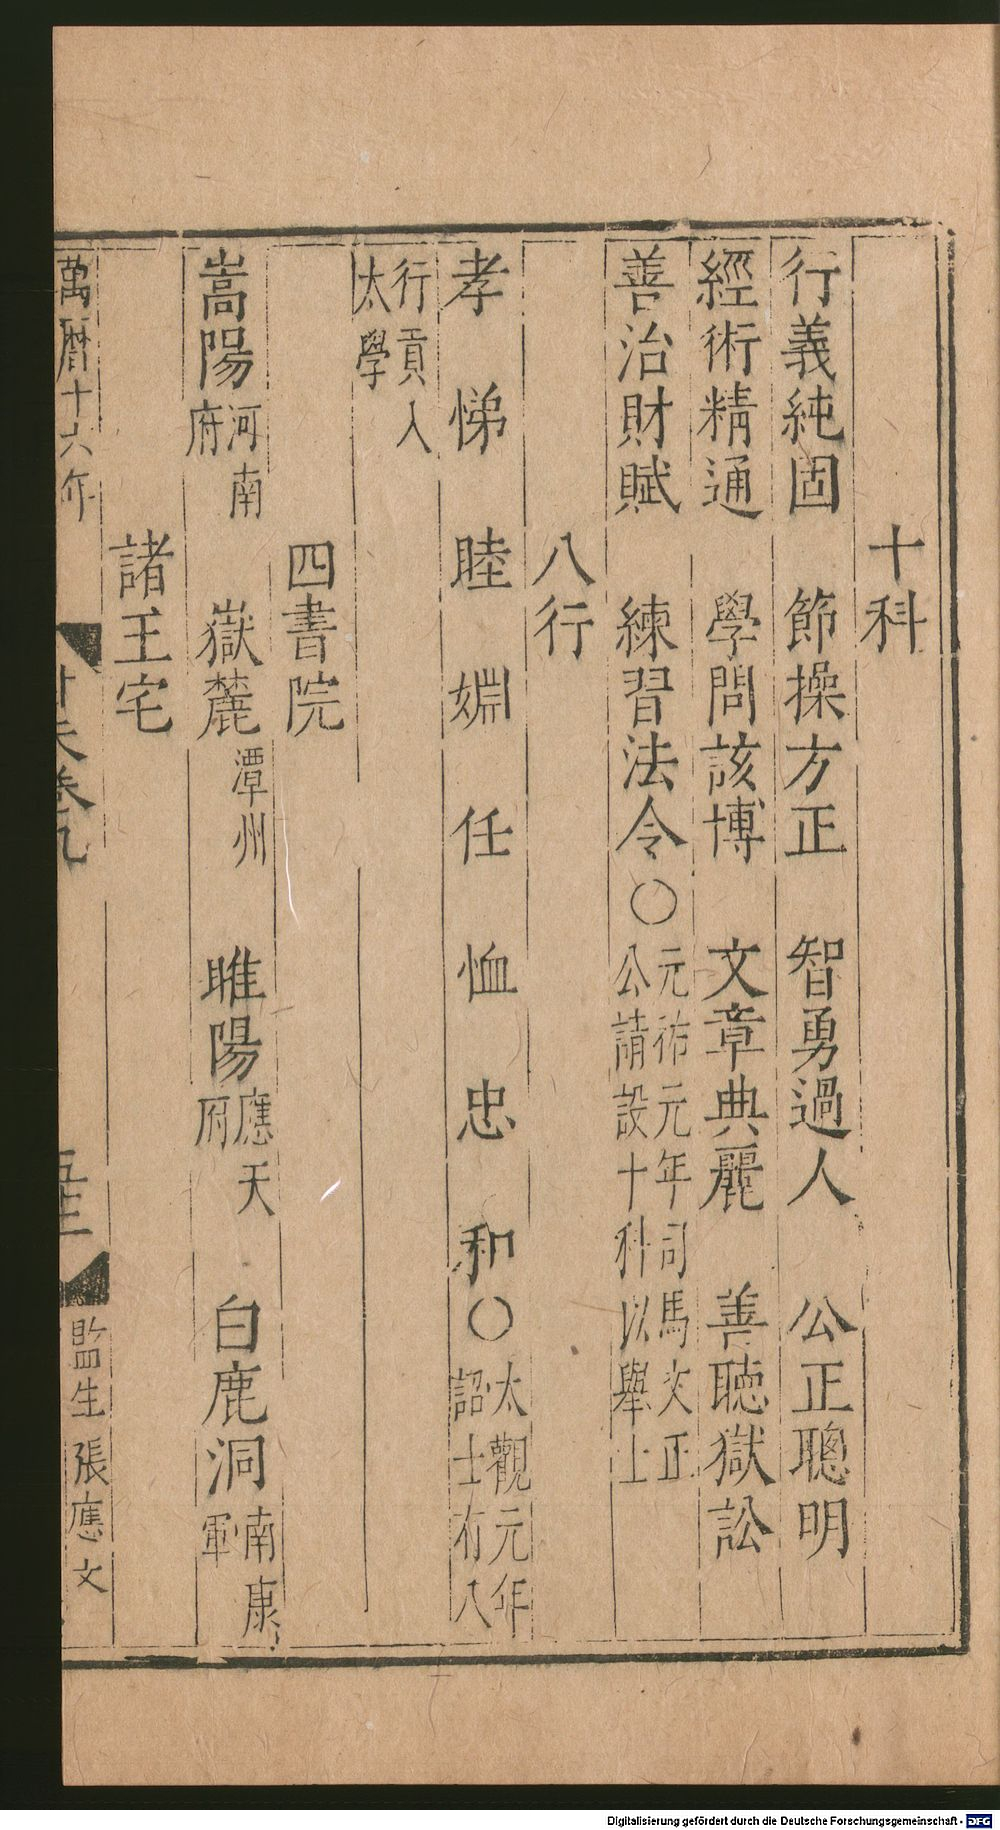 十科
行義純固　節操方正　智勇過人　公正聰明
經術精通　學問該博　文章典麗　善聽獄訟
善治財賦　練習法令○元祐元年司馬文正公請設十科以舉士
八行
孝悌睦婣任恤忠和○大觀元年詔士有八
行貢入太學
四書院
嵩陽河南府　嶽麓潭州　睢陽應天府　白鹿洞南康軍
諸王宅
萬曆十六年
卷九
五十三
監生張應文
Digitalisierung gefördert durch die Deutsche Forschungsgemeinschaft - DFG